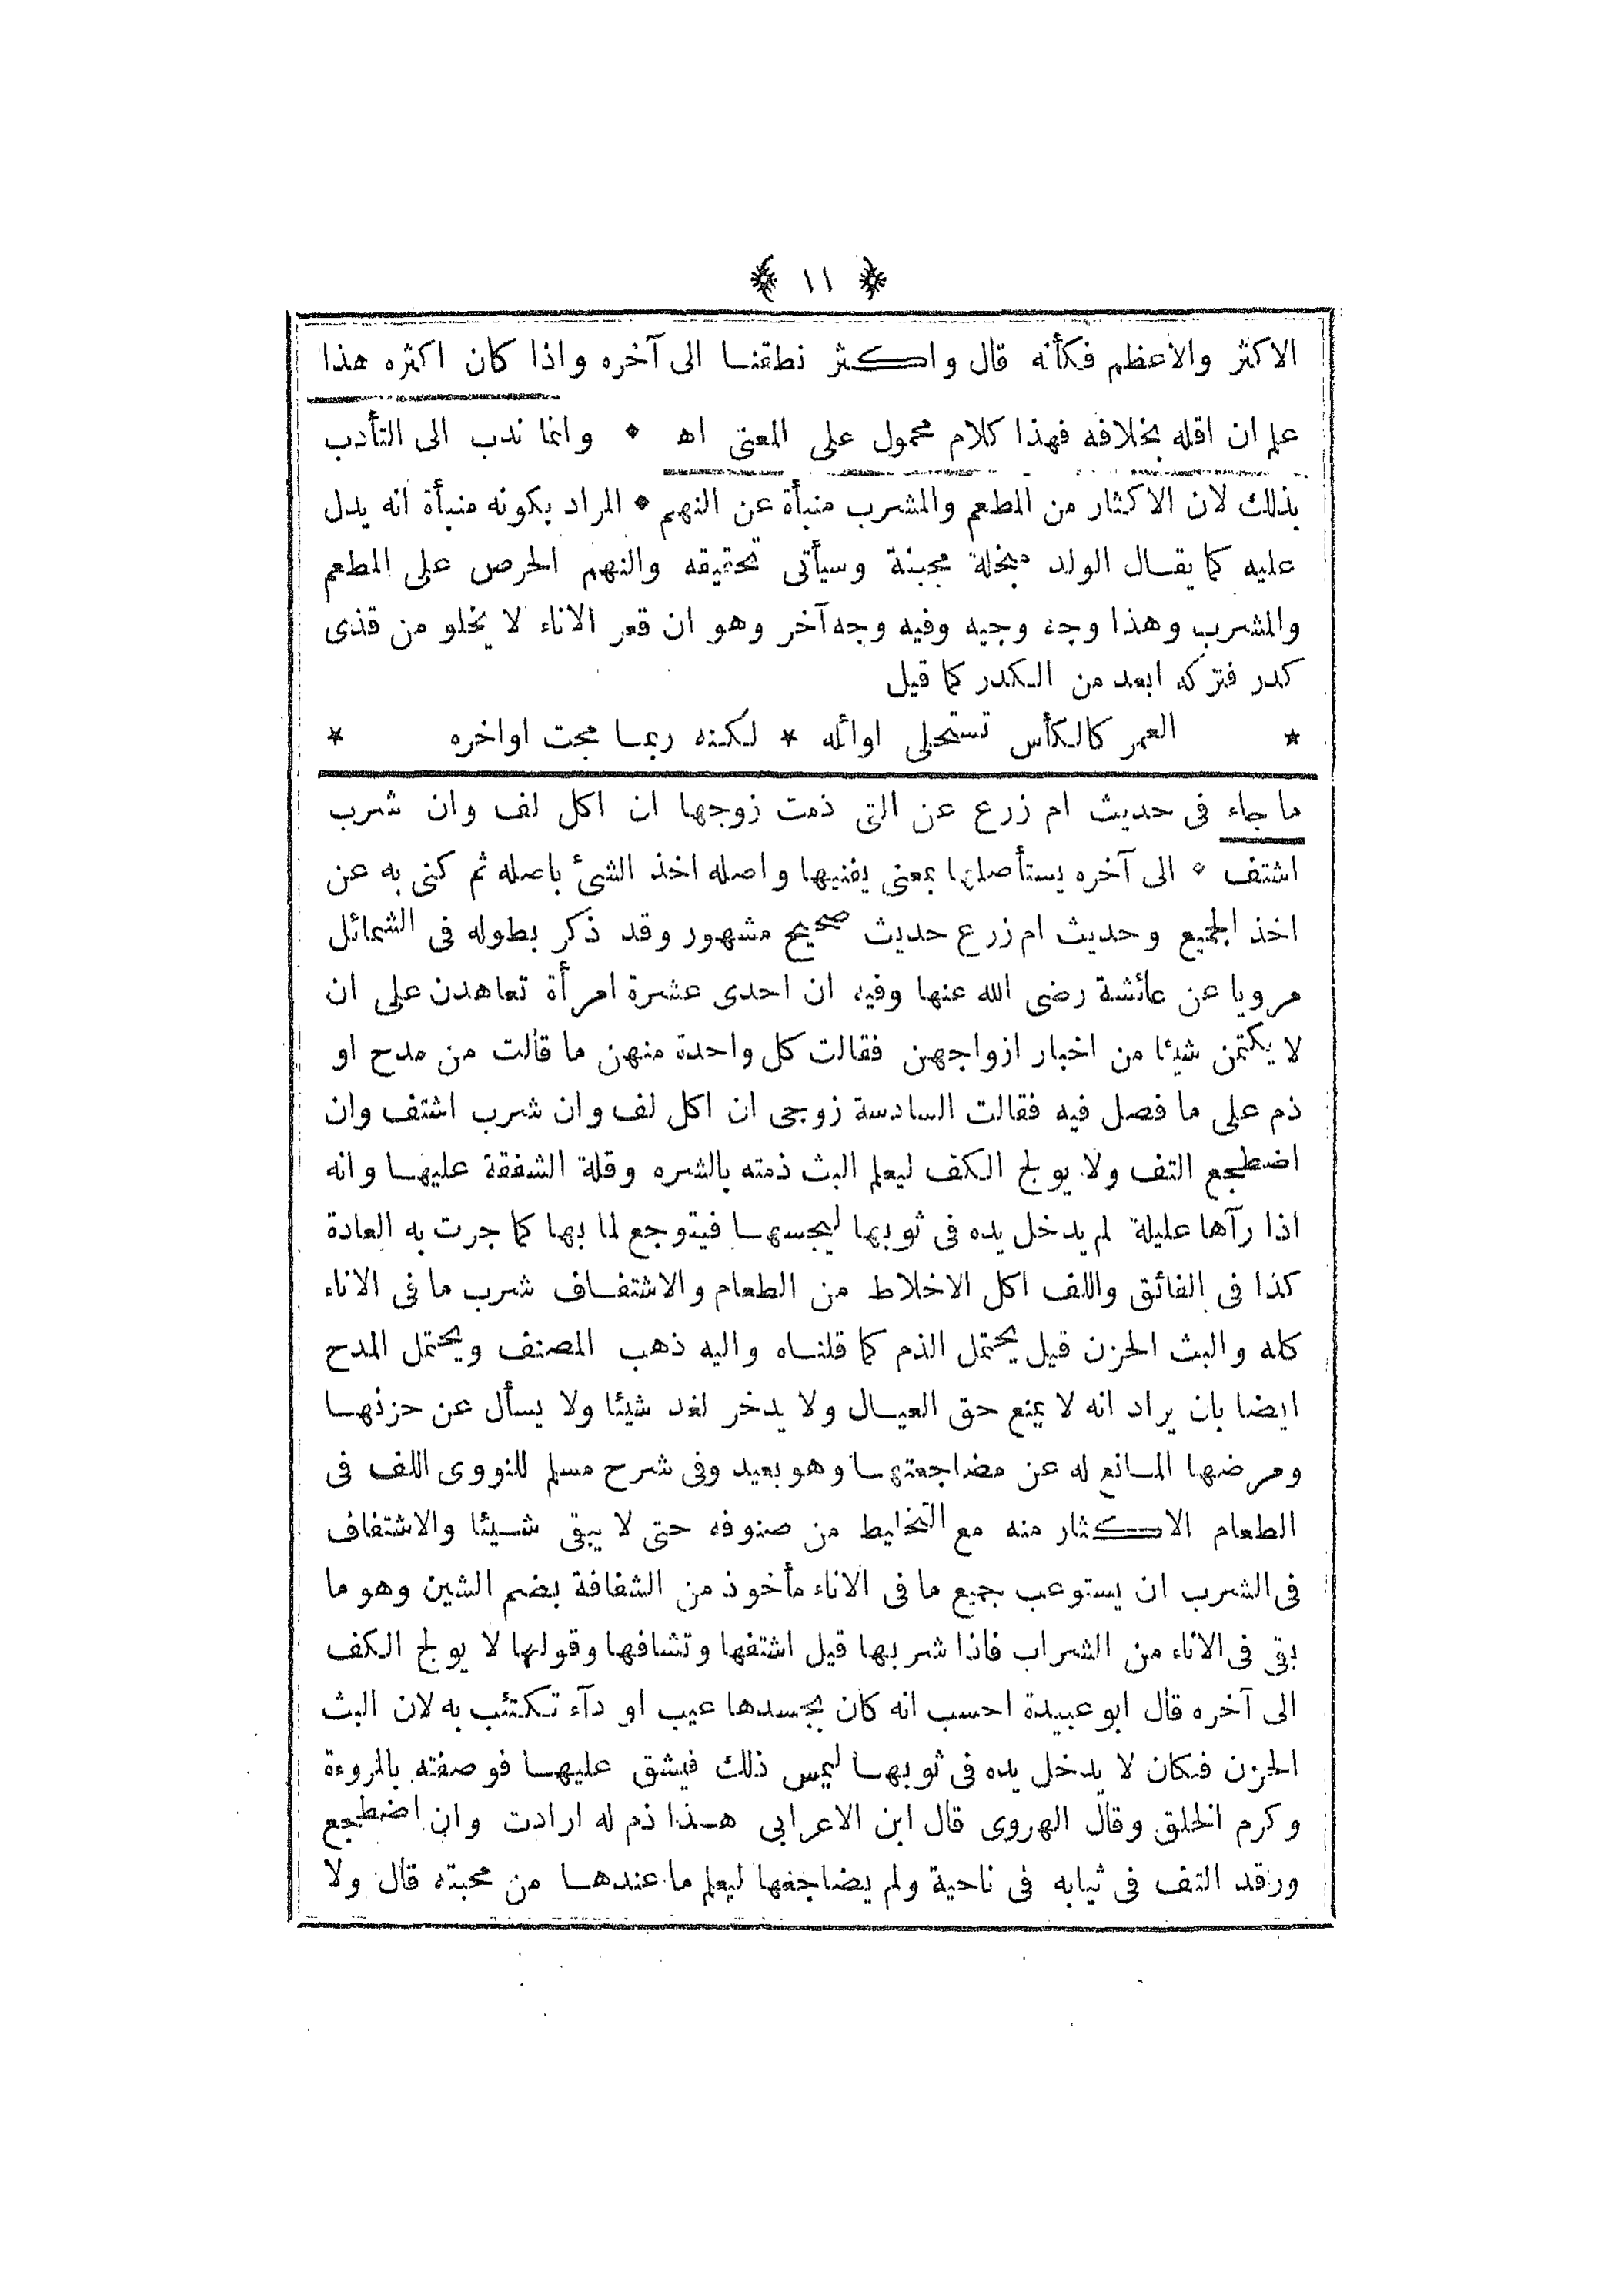 ﴿ ١١ ﴾
الاكثر والاعظم فكأنه قال واكثر نطقنا الى آخره واذا كان اكثره هذا
علم ان اقله بخلافه فهذا كلام محمول على المعنى اه * وانما ندب الى التأدب
بذلك لان الاكثار من المطعم والمشرب منبأة عن النهم * المراد بكونه منبأة انه يدل
عليه كما يقال الولد مبخلة مجبنة وسيأتى تحقيقه والنهم الحرص على المطعم
والمشرب وهذا وجه وجيه وفيه وجه آخر وهو ان قعر الاناء لا يخلو من قذى
كدر فتركه ابعد من الكدر كما قيل
* العمر كالكأس تستحلى اوائله * لكنه ربما مجت اواخره *
ما جاء فى حديث ام زرع عن التى ذمت زوجها ان اكل لف وان شرب
اشتف * الى آخره يستأصلها بمعنى يفنيها واصله اخذ الشئ باصله ثم كنى به عن
اخذ الجميع وحديث ام زرع حديث صحيح مشهور وقد ذكر بطوله فى الشمائل
مرويا عن عائشة رضى الله عنها وفيه ان احدى عشرة امرأة تعاهدن على ان
لا يكتمن شيئا من اخبار ازواجهن فقالت كل واحدة منهن ما قالت من مدح او
ذم على ما فصل فيه فقالت السادسة زوجى ان اكل لف وان شرب اشتف وان
اضطجع التف ولا يولج الكف ليعلم البث ذمته بالشره وقلة الشفقة عليها وانه
اذا رآها عليلة لم يدخل يده فى ثوبها ليجسها فيتوجع لما بها كما جرت به العادة
كذا فى الفائق واللف اكل الاخلاط من الطعام والاشتفاف شرب ما فى الاناء
كله والبث الحزن قيل يحتمل الذم كما قلناه واليه ذهب المصنف ويحتمل المدح
ايضا بان يراد انه لا يمنع حق العيال ولا يدخر لغد شيئا ولا يسأل عن حزنها
ومرضها المانع له عن مضاجعتها وهو بعيد وفى شرح مسلم للنووى اللف فى
الطعام الاكثار منه مع التخليط من صنوفه حتى لا يبقى شيئا والاشتفاف
فى الشرب ان يستوعب جميع ما فى الاناء مأخوذ من الشفافة بضم الشين وهو ما
بقى فى الاناء من الشراب فاذا شربها قيل اشتفها وتشافها وقولها لا يولج الكف
الى آخره قال ابو عبيدة احسب انه كان بجسدها عيب او دآء تكتئب به لان البث
الحزن فكان لا يدخل يده فى ثوبها ليمس ذلك فيشق عليها فوصفته بالمروءة
وكرم الخلق وقال الهروى قال ابن الاعرابى هذا ذم له ارادت وان اضطجع
ورقد التف فى ثيابه فى ناحية ولم يضاجعها ليعلم ما عندها من محبته قال ولا